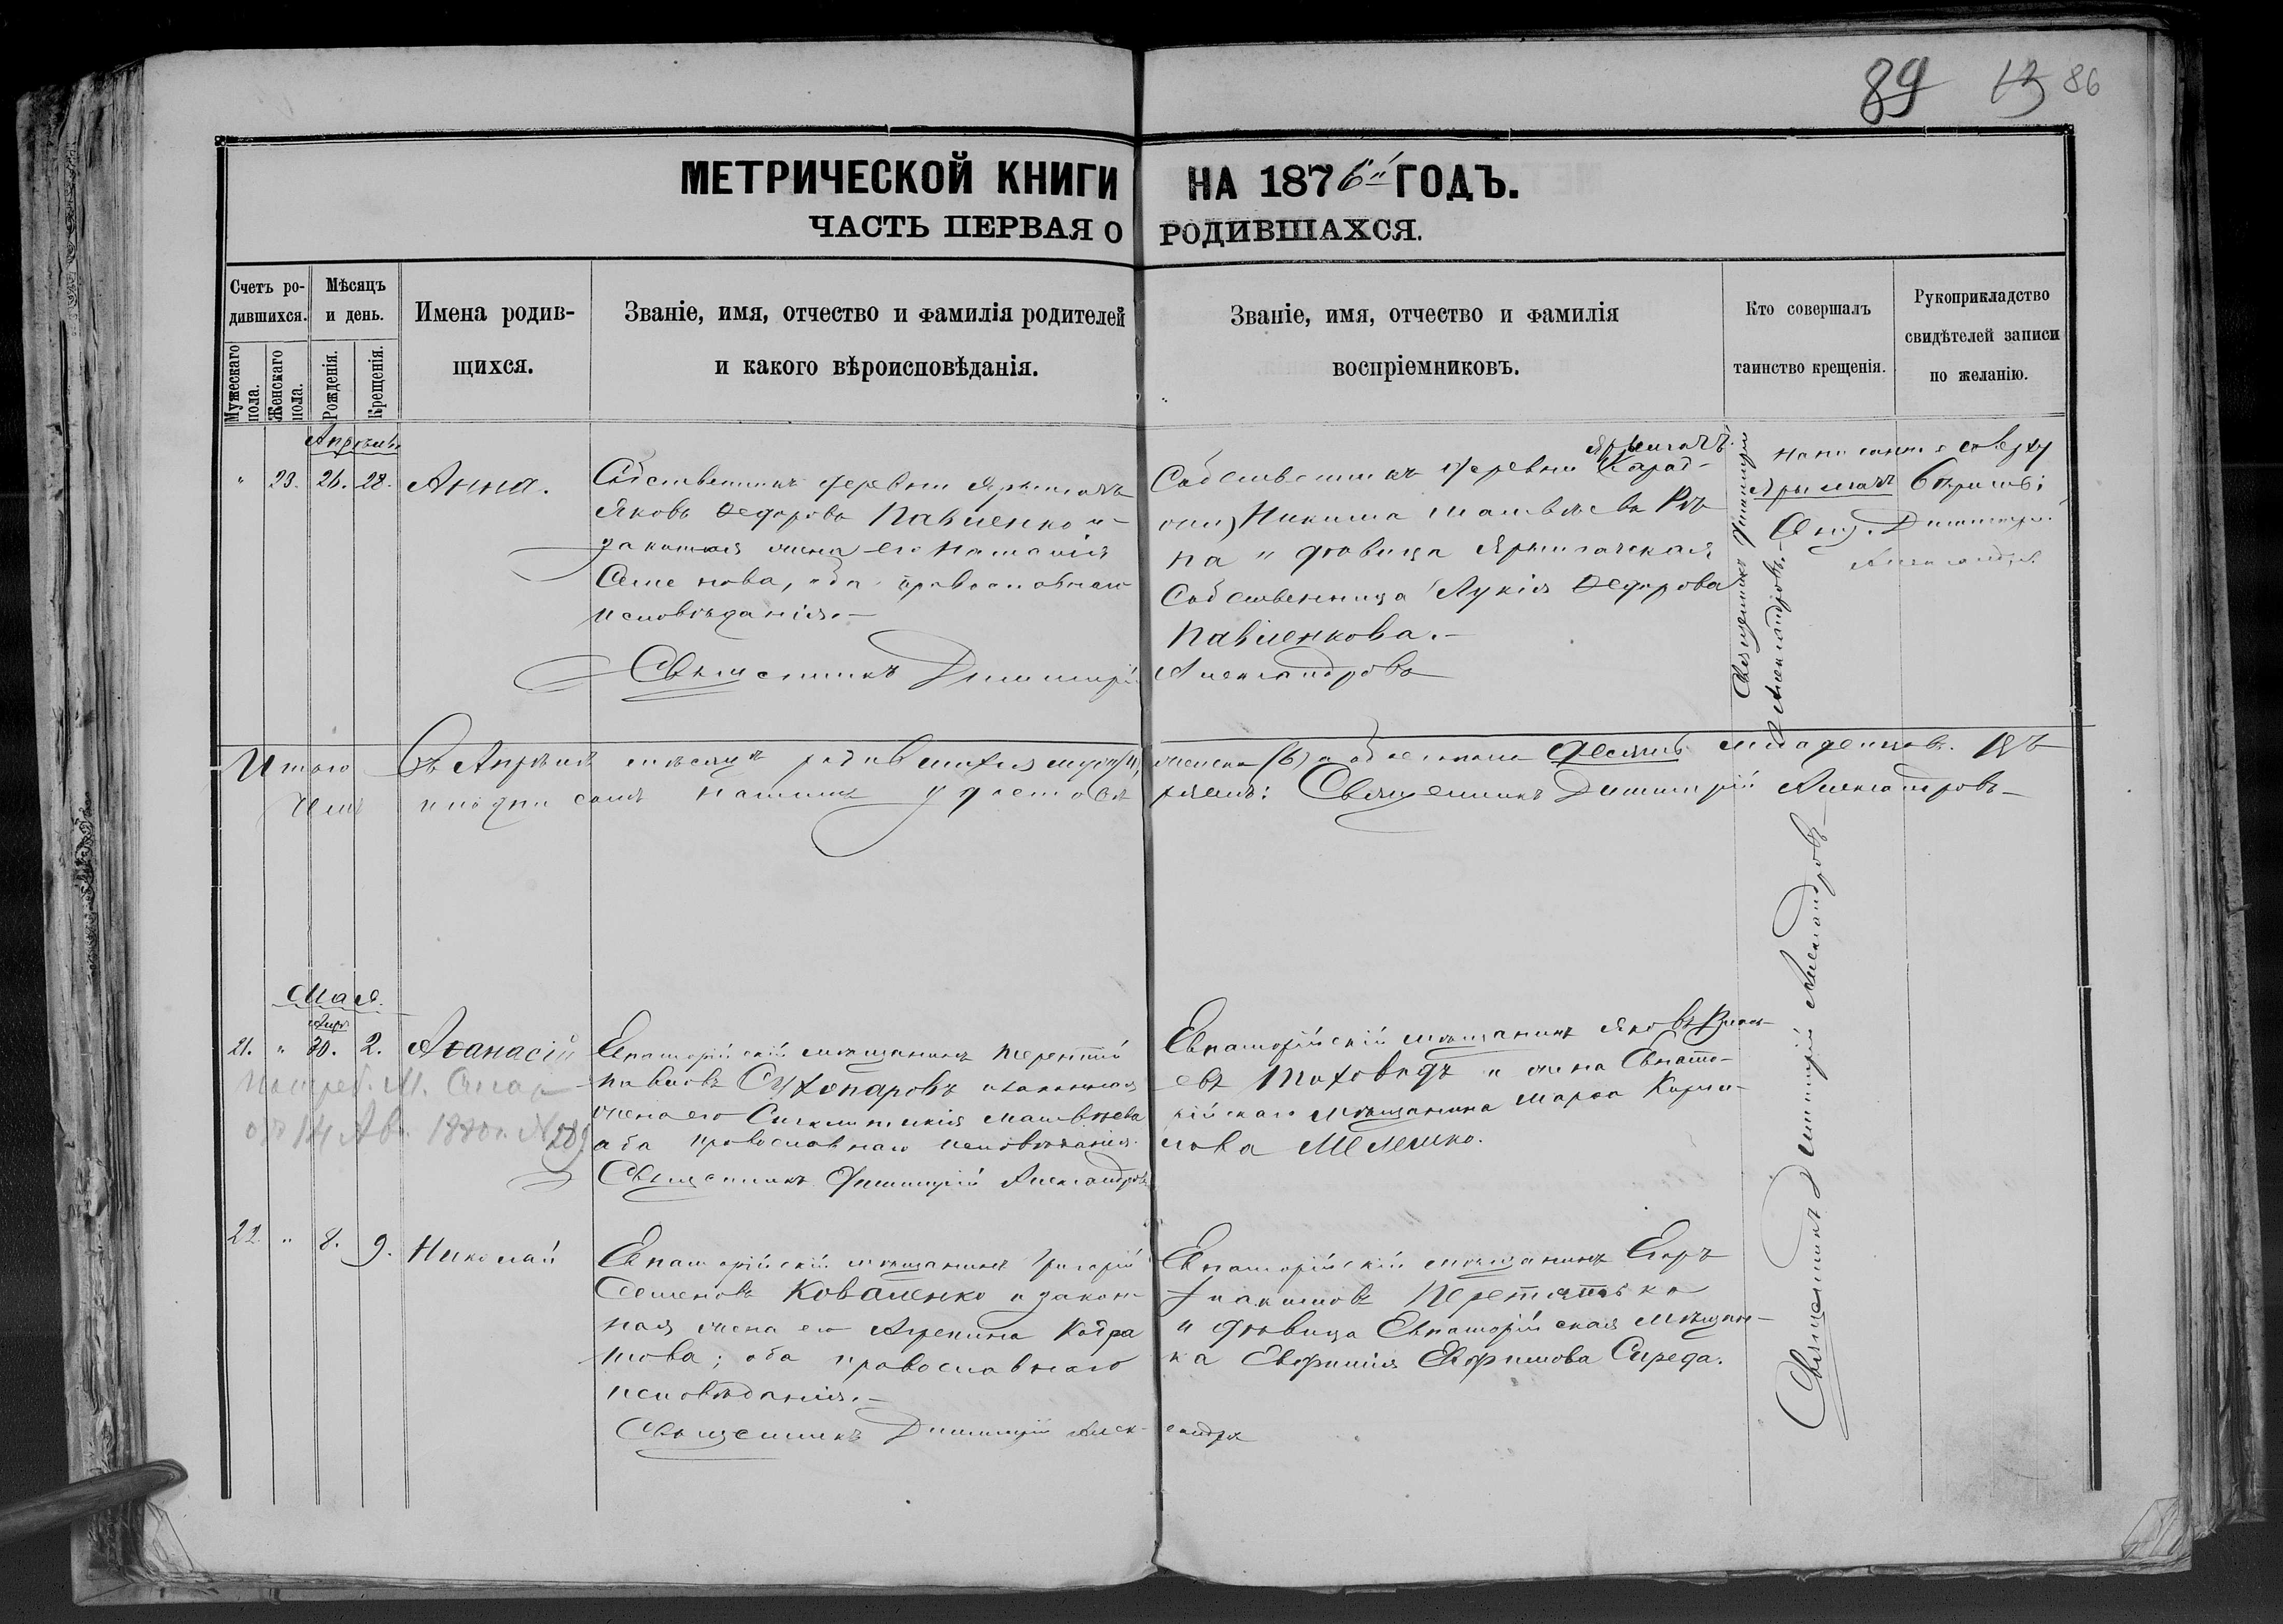 89 13 86
МЕТРИЧЕСКОЙ КНИГИ НА 1876й ГОДЪ.
ЧАСТЬ ПЕРВАЯ О РОДИВШАХСЯ.
Счетъ ро-
дившихся.
Мужескаго пола.
Женскаго пола.
Мѣсяцъ
и день.
Рожденія.
Крещенія.
Имена родив-
щихся.
Званіе, имя, отчество и фамилія родителей
и какого вѣроисповѣданія.
Званіе, имя, отчество и фамилія
воспріемниковъ.
Кто совершалъ
таинство крещенія.
Рукоприкладство
свидѣтелей записи
по желанію.
Апрѣль
" 23. 26. 28. Анна.
Собственникъ деревни Ярылгачъ
Яковъ Ѳедоровъ Павленко и
законная жена его Наталія
Семенова, оба православнаго
исповѣданія.—
Священникъ Димитрій Александровъ
Ярылгачъ
Собственникъ деревни
Никита Матвѣевъ
на и дѣвица Ярылгачская
Собственница Лукія Ѳедорова
Павленкова.—
Священникъ Димитрій
Александровъ.
написанное сверху
Ярылгачъ вѣрить:
Свящ. Димитрій
Александров
Итого Въ Апрѣлѣ мѣсяцѣ родившихся муж (4) женска (6) а обоего пола десять младенцевъ. Въ
чемъ и подписомъ нашимъ удостовѣряемъ: Священникъ Димитрій Александровъ—
Мая.
Апр.
21. " 30. 2. Аѳанасій
14 Ав. 1880 г. №
Евпаторійскій мѣщанинъ Терентій
Павловъ Сухопаровъ и законная
жена его Синклитикія Матвѣева
оба православнаго исповѣданія.
Священникъ Димитрій Александровъ
Евпаторійскій мѣщанинъ Яковъ
евъ и жена Евпато-
рійскаго мѣщанина Марѳа Кирил-
лова Мелешко.
22. " 8. 9. Николай
Евпаторійскій мѣщанинъ Григорій
Семеновъ Коваленко и закон-
ная жена его Агрепина Кодра
това; оба православнаго
исповѣданія.—
Священникъ Димитрій Александр
Евпаторійскій мѣщанинъ Егоръ
Іоакимовъ Перетятько
и дѣвица Евпаторійская мѣщан-
ка Евфимія Евфимова Середа.
Священникъ Димитрій Александровъ—